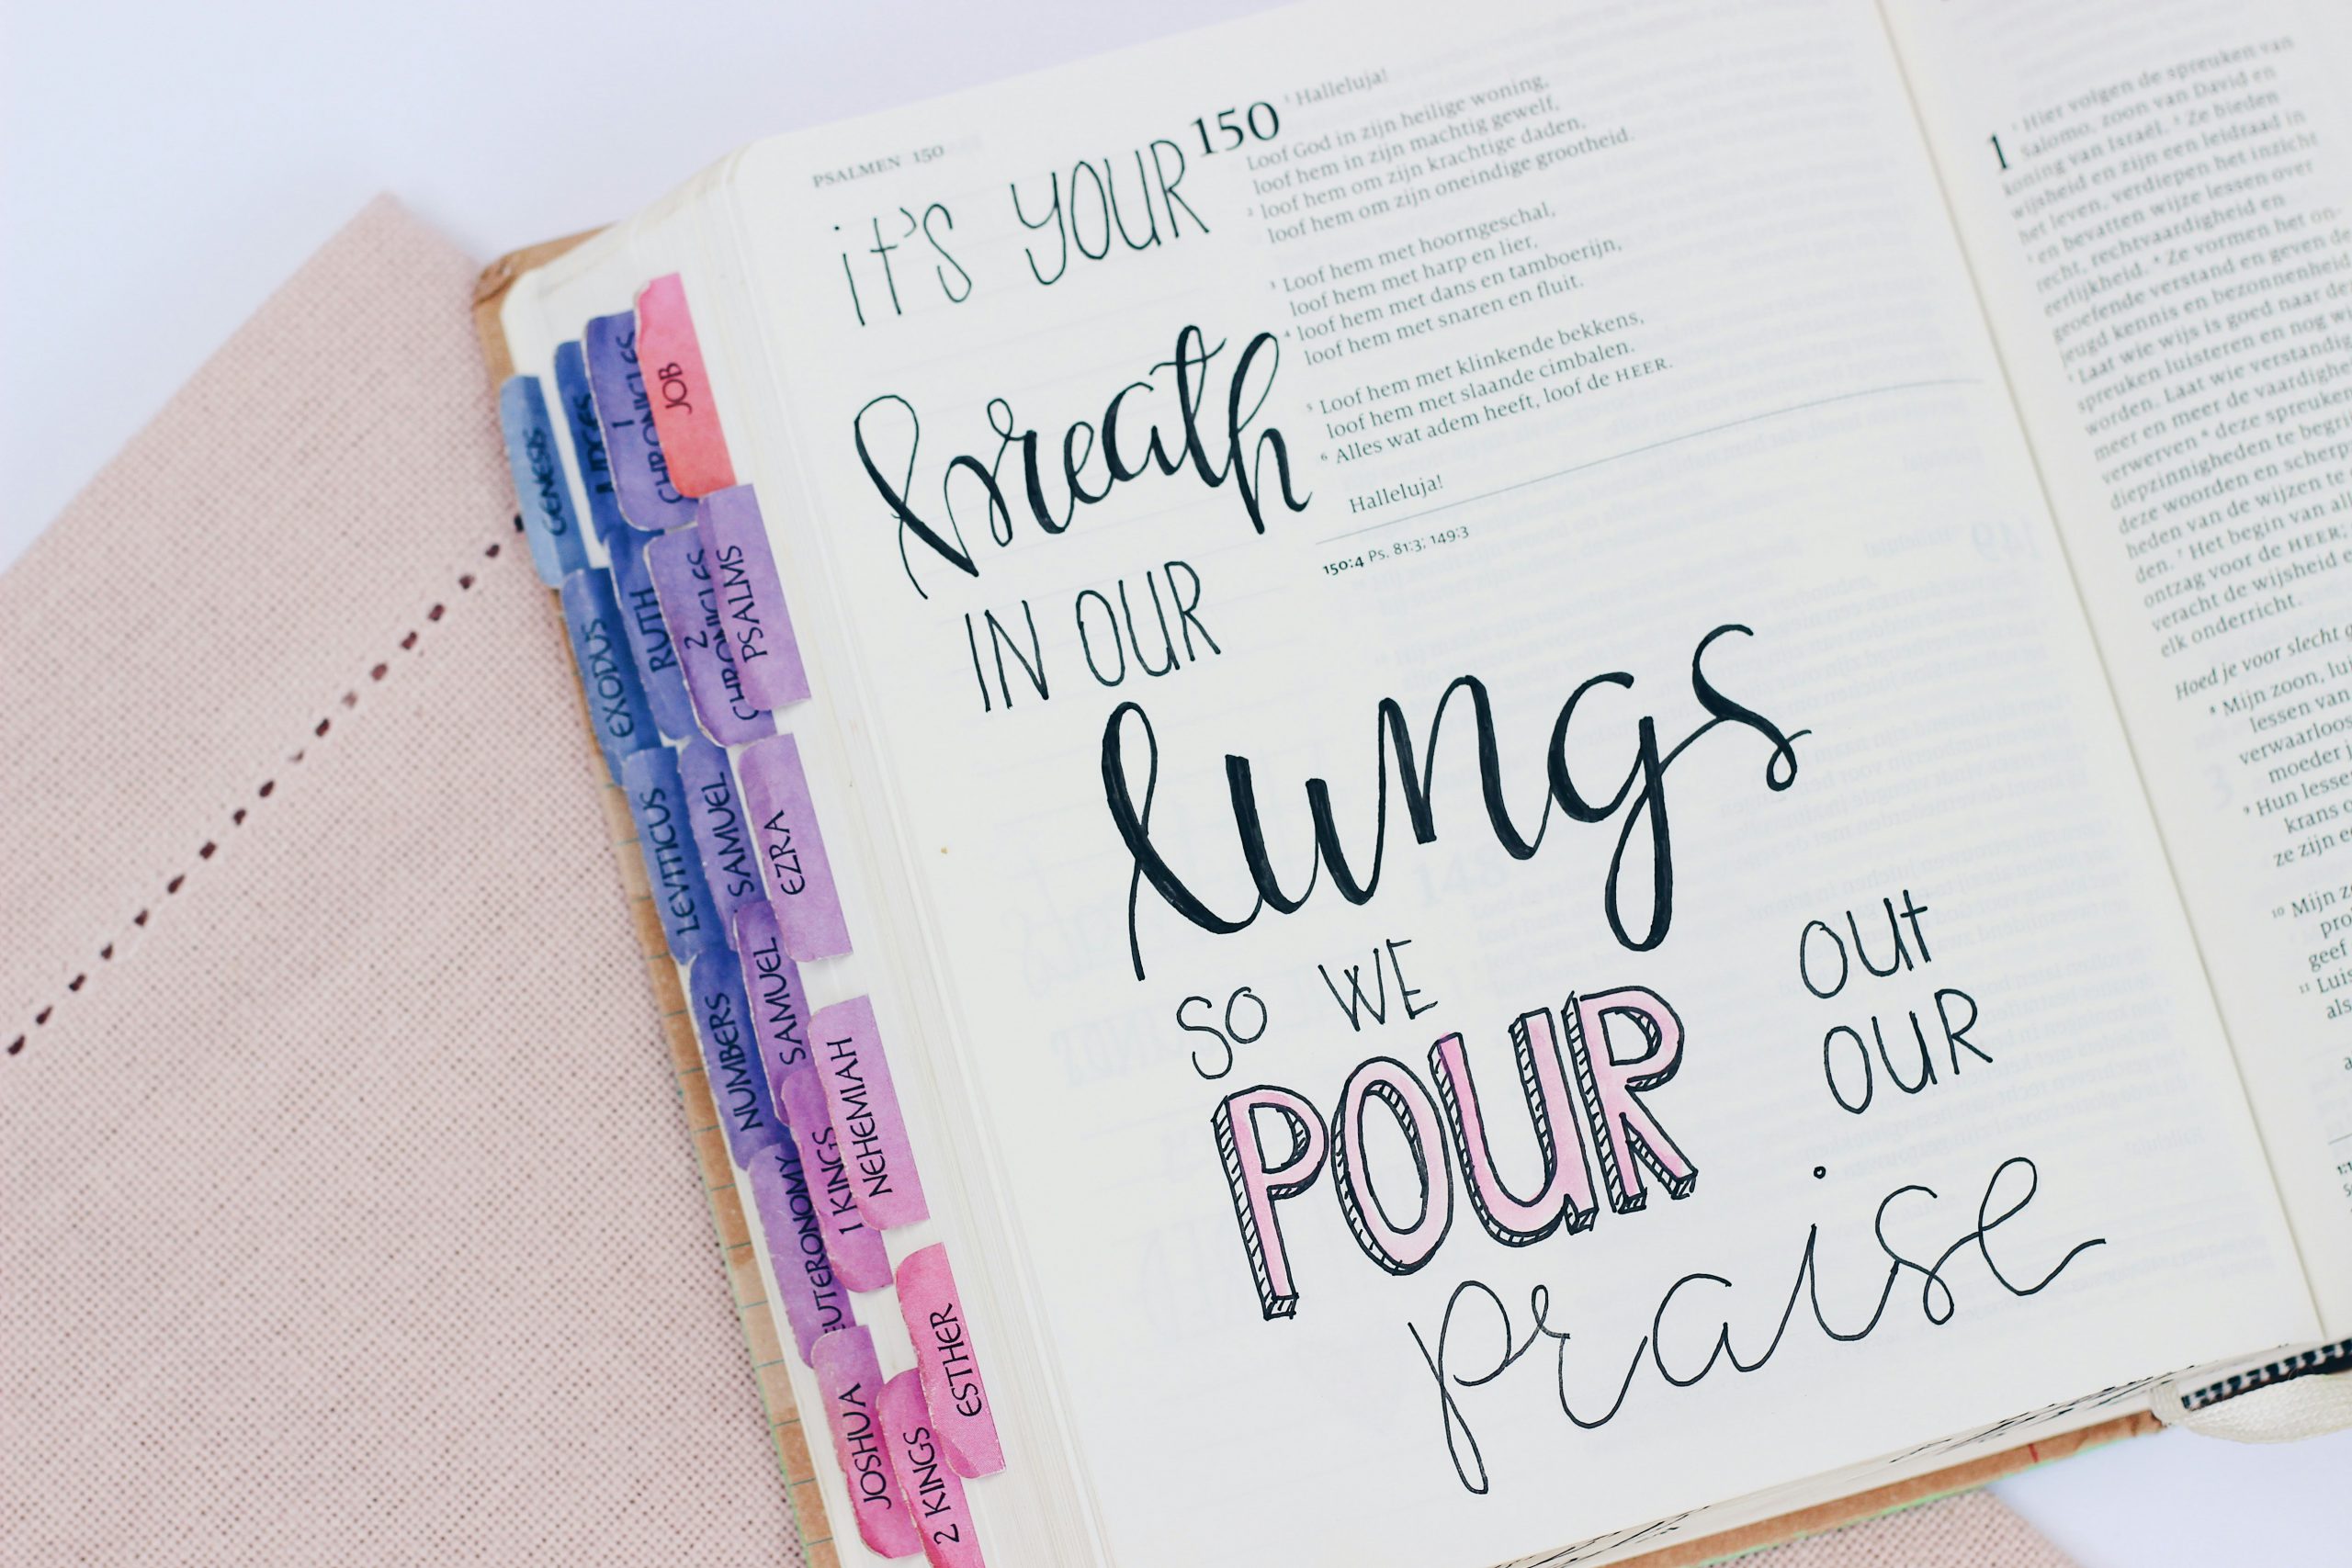 PSALMEN 150
150
¹ Halleluja!
Loof God in zijn heilige woning,
loof hem in zijn machtig gewelf,
² loof hem om zijn krachtige daden,
loof hem om zijn oneindige grootheid.
³ Loof hem met hoorngeschal,
loof hem met harp en lier,
⁴ loof hem met dans en tamboerijn,
loof hem met snaren en fluit.
⁵ Loof hem met klinkende bekkens,
loof hem met slaande cimbalen.
⁶ Alles wat adem heeft, loof de HEER.
Halleluja!
150:4 Ps. 81:3; 149:3
it's YOUR
breath
IN OUR
lungs
SO WE
POUR
OUt
OUR
praise
GENESIS
EXODUS
LEVITICUS
NUMBERS
EUTERONOMY
JOSHUA
JUDGES
RUTH
SAMUEL
SAMUEL
1 KINGS
2 KINGS
1 CHRONICLES
2 CHRONICLES
EZRA
NEHEMIAH
ESTHER
JOB
PSALMS
1
¹ Hier volgen de spreuken van
Salomo, zoon van David en
koning van Israël. ² Ze bieden
wijsheid en zijn een leidraad in
het leven, verdiepen het inzicht
³ en bevatten wijze lessen over
recht, rechtvaardigheid en
eerlijkheid. ⁴ Ze vormen het on-
geoefende verstand en geven de
jeugd kennis en bezonnenheid
⁵ Laat wie wijs is goed naar deze
spreuken luisteren en nog w
worden. Laat wie verstandig
meer en meer de vaardighe
verwerven ⁶ deze spreuken
diepzinnigheden te begri
deze woorden en scherp
heden van de wijzen te
den. ⁷ Het begin van al
ontzag voor de HEER.
veracht de wijsheid e
elk onderricht.
Hoed je voor slecht g
⁸ Mijn zoon, lui
lessen van
verwaarloos
moeder j
⁹ Hun lesse
krans o
ze zijn e
¹⁰ Mijn z
pro
geef
¹¹ Luis
als